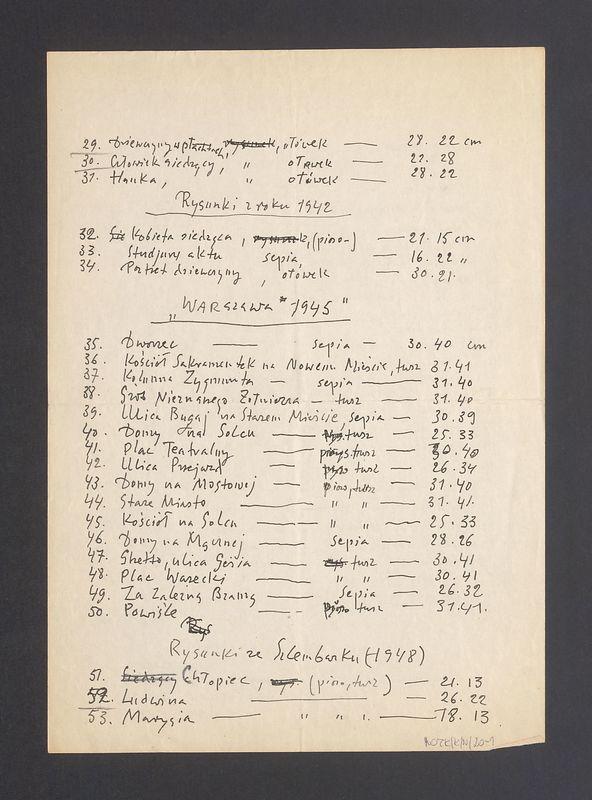 29. Dziewczyna w płachcie, rysunek, ołówek — 28. 22 cm
30. Człowiek siedzący, " ołówek — 22. 28
31. Hanka, " ołówek — 28. 22
Rysunki z roku 1942
32. Kobieta siedząca, rysunek, (pióro) — 21. 15 cm
33. Studjum aktu sepia, — 16. 22 "
34. Portret dziewczyny, ołówek — 30. 21.
"WARSZAWA" 1945"
35. Dworzec — sepia — 30. 40 cm
36. Kościół Sakramentek na Nowem Mieście, tusz 31.41
37. Kolumna Zygmunta — sepia — 31.40
38. Grób Nieznanego Żołnierza — tusz — 31.40
39. Ulica Bugaj na Starem Mieście, sepia — 30.39
40. Domy nad Solcu — tusz — 25. 33
41. Plac Teatralny — tusz — 30.40
42. Ulica Przejazd — tusz — 26.34
43. Domy na Mostowej — pióro, tusz — 31.40
44. Stare Miasto — " " — 31.41.
45. Kościół na Solcu — " " — 25.33
46. Domy na — sepia — 28.26
47. Ghetto, ulica Gęsia — tusz — 30.41
48. Plac Warecki — " " — 30.41
49. Za Żelazną Bramą — sepia — 26.32
50. Powiśle — tusz — 31.41.
Rys
Rysunki ze Szlembarku (1948)
51. Siedzący Chłopiec, rys. (pióro, tusz) — 21. 13
52. Ludwina — 26. 22
53. Marysia — " " " — 18. 13